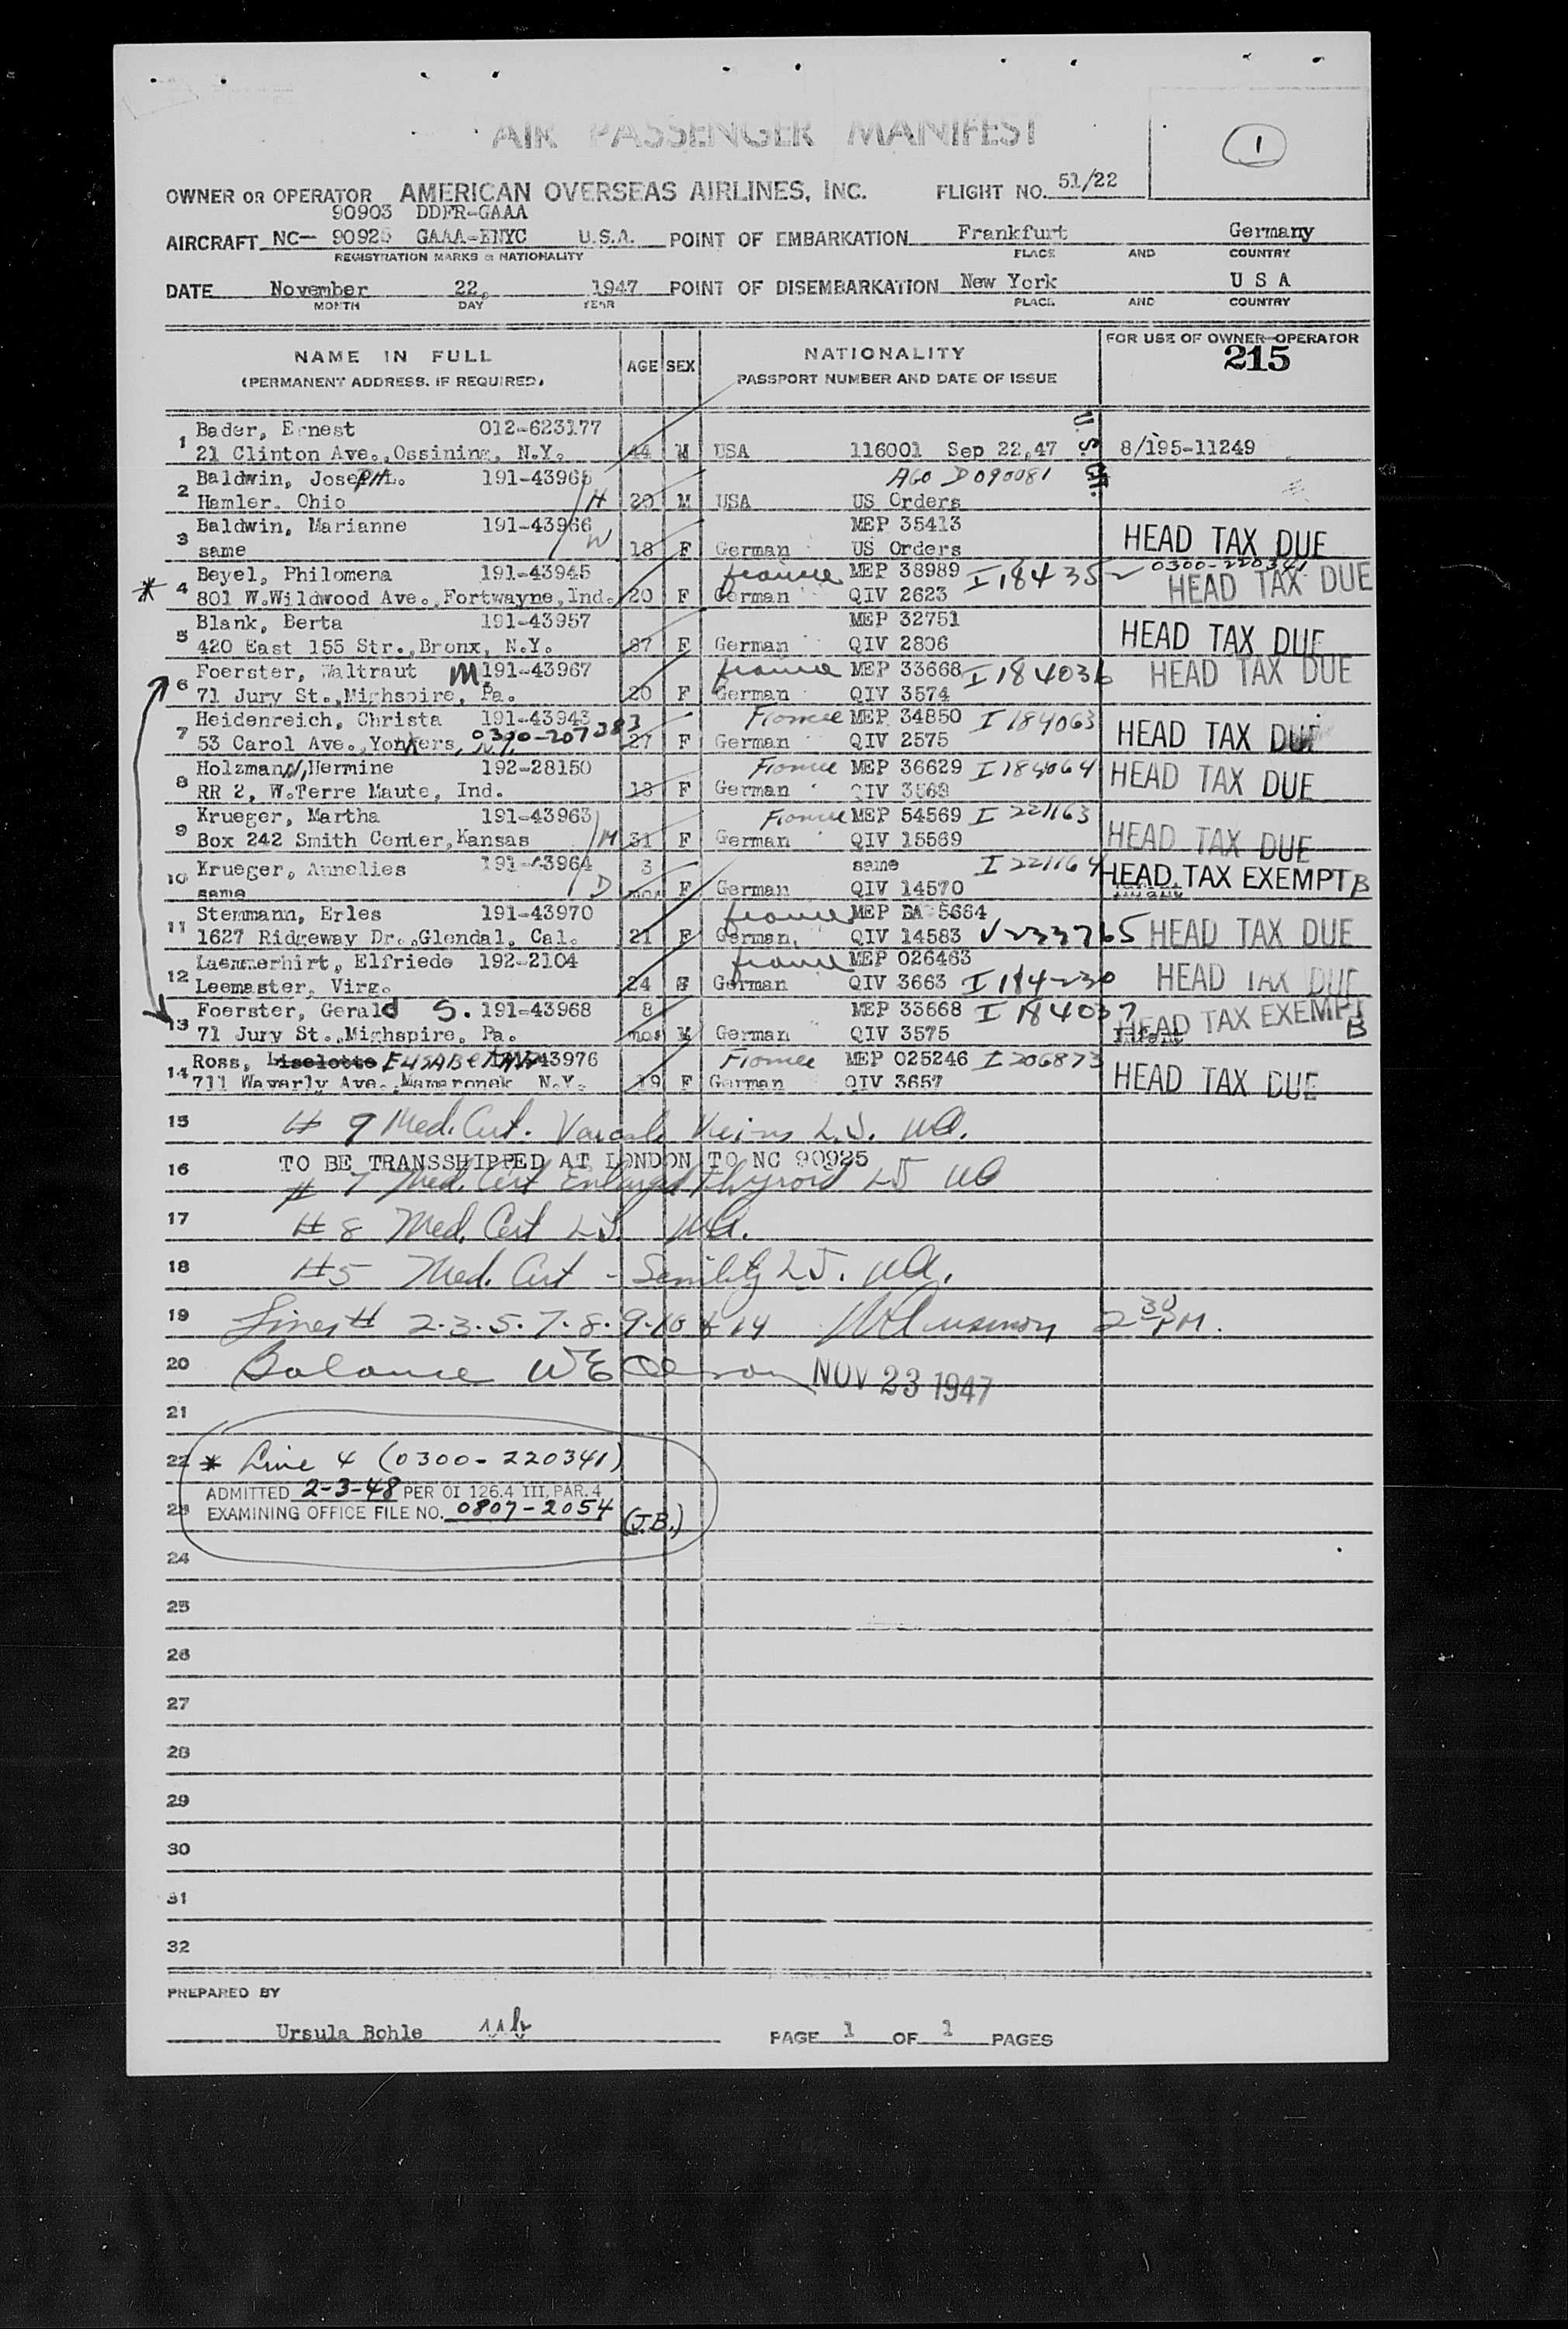 AIR PASSENGER MANIFEST
1
OWNER OR OPERATOR AMERICAN OVERSEAS AIRLINES, INC. FLIGHT NO. 51/22
90903 DDFR-GAAA
AIRCRAFT NC- 90925 GAAA-ENYC U.S.A. POINT OF EMBARKATION Frankfurt Germany
REGISTRATION MARKS & NATIONALITY PLACE AND COUNTRY
DATE November 22, 1947 POINT OF DISEMBARKATION New York U S A
MONTH DAY YEAR PLACE AND COUNTRY
NAME IN FULL AGE SEX NATIONALITY FOR USE OF OWNER-OPERATOR
(PERMANENT ADDRESS, IF REQUIRED) PASSPORT NUMBER AND DATE OF ISSUE 215
1 Bader, Ernest 012-623177 U.S. Cit.
21 Clinton Ave., Ossining, N.Y. 44 M USA 116001 Sep 22,47 8/195-11249
2 Baldwin, JosePH L. 191-43965 AGO D090081
Hamler, Ohio H 20 M USA US Orders
3 Baldwin, Marianne 191-43966 MEP 35413
same W 18 F German US Orders HEAD TAX DUE
* 4 Beyel, Philomena 191-43945 france MEP 38989 I 18435 0300-220341
801 W.Wildwood Ave., Fortwayne, Ind. 20 F German QIV 2623 HEAD TAX DUE
5 Blank, Berta 191-43957 MEP 32751
420 East 155 Str., Bronx, N.Y. 67 F German QIV 2806 HEAD TAX DUE
6 Foerster, Waltraut M. 191-43967 france MEP 33668 I 184036 HEAD TAX DUE
71 Jury St., Mighspire, Pa. 20 F German QIV 3574
7 Heidenreich, Christa 191-43943 France MEP 34850 I 184063
53 Carol Ave., Yonkers, N.Y. 0300-207383 27 F German QIV 2575 HEAD TAX DUE
8 Holzmann, Hermine 192-28150 France MEP 36629 I 184064
RR 2, W.Terre Maute, Ind. 18 F German QIV 3569 HEAD TAX DUE
9 Krueger, Martha 191-43963 France MEP 54569 I 221163
Box 242 Smith Center, Kansas M 31 F German QIV 15569 HEAD TAX DUE
10 Krueger, Annelies 191-43964 3 same I 221164 HEAD TAX EXEMPT B
same D mos F German QIV 14570 Infant
11 Stemmann, Erles 191-43970 france MEP BA 5664
1627 Ridgeway Dr., Glendal, Cal. 21 F German, QIV 14583 V 233765 HEAD TAX DUE
12 Laemmerhirt, Elfriede 192-2104 france MEP 026463
Leemaster, Virg. 24 F German QIV 3663 I 184230 HEAD TAX DUE
13 Foerster, Gerald S. 191-43968 8 MEP 33668 I 184037 HEAD TAX EXEMPT B
71 Jury St., Mighspire, Pa. mos M German QIV 3575 Infant
14 Ross, Liselotte ELISABETH 191-43976 France MEP 025246 I 206873
711 Waverly Ave., Mamaronek N.Y. 19 F German QIV 3657 HEAD TAX DUE
15 # 9 Med. Cert. Varicose Veins L.J.
16 TO BE TRANSSHIPPED AT LONDON TO NC 90925
# 7 Med. Cert Enlarged Thyroid LJ
17 # 8 Med. Cert LJ.
18 #5 Med. Cert - Senility LJ.
19 Lines # 2.3.5.7.8.9.10 & 14 2 30 PM.
20 Balance NOV 23 1947
21
22 * Line 4 (0300-220341)
ADMITTED 2-3-48 PER OI 126.4 III, PAR. 4
23 EXAMINING OFFICE FILE NO. 0807-2054 (J.B.)
24
25
26
27
28
29
30
31
32
PREPARED BY
Ursula Bohle ub
PAGE 1 OF 1 PAGES